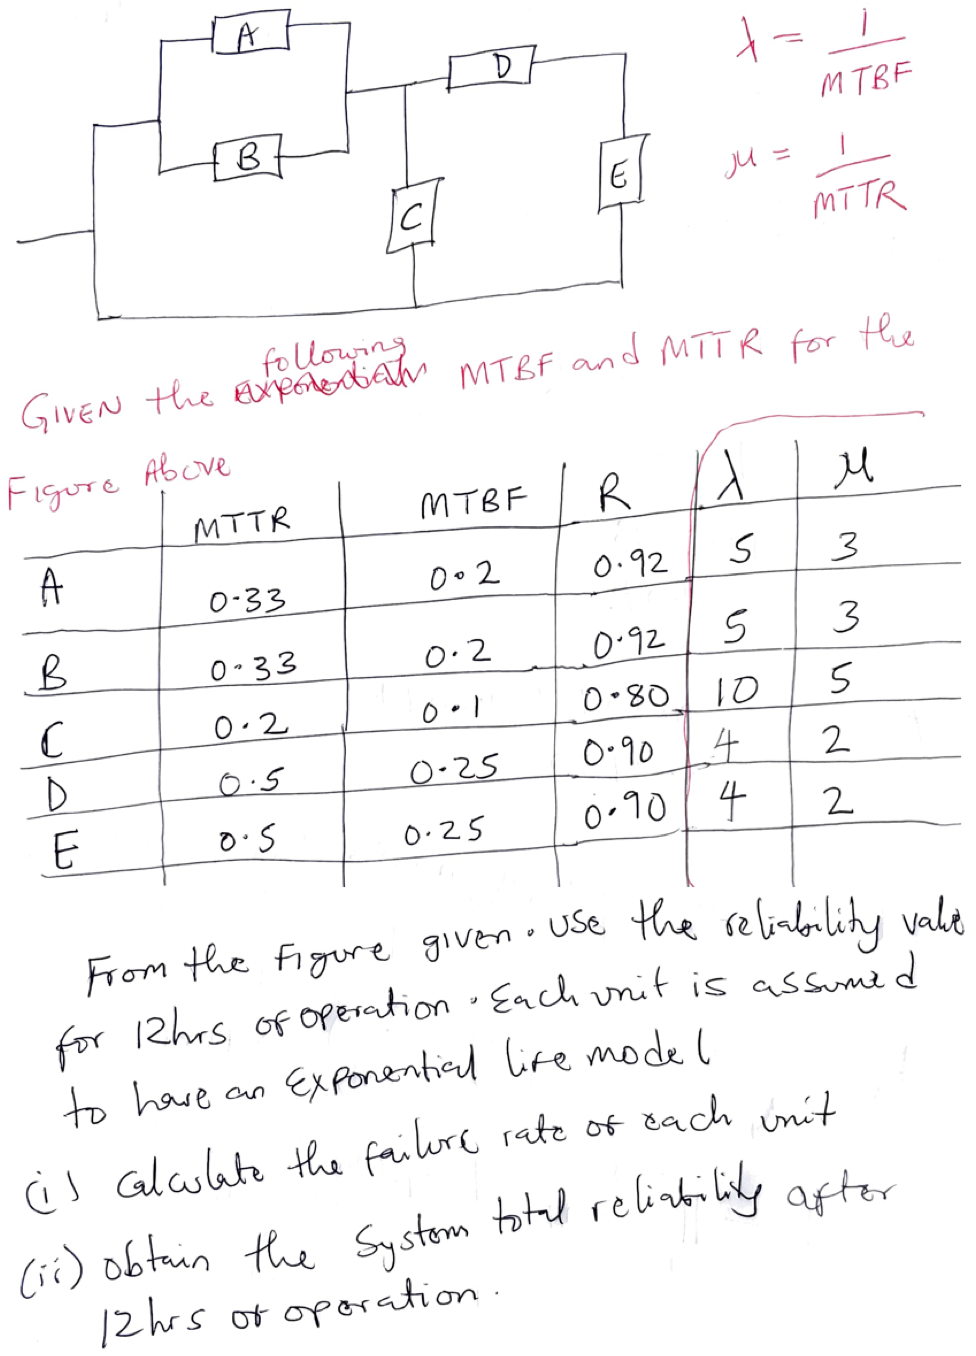 A
B
C
D
E
λ = 1/MTBF
μ = 1/MTTR
GIVEN the following MTBF and MTTR for the
Figure Above
MTTR MTBF R λ μ
A 0.33 0.2 0.92 5 3
B 0.33 0.2 0.92 5 3
C 0.2 0.1 0.80 10 5
D 0.5 0.25 0.90 4 2
E 0.5 0.25 0.90 4 2
From the figure given. Use the reliability value
for 12hrs of operation. Each unit is assumed
to have an Exponential life model
(i) Calculate the failure rate of each unit
(ii) obtain the System total reliability after
12hrs of operation.